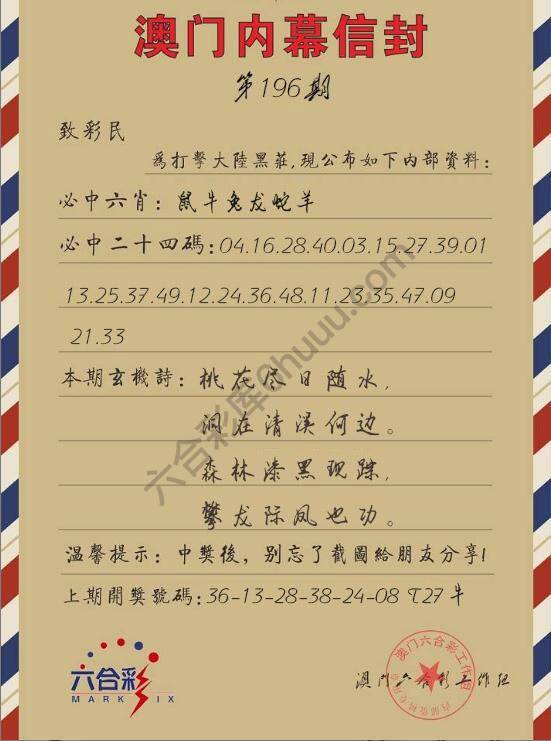 澳门内幕信封
第196期
致彩民
為打擊大陸黑莊,現公布如下内部資料:
必中六肖: 鼠牛兔龙蛇羊
必中二十四碼:04.16.28.40.03.15.27.39.01
13.25.37.49.12.24.36.48.11.23.35.47.09
21.33
本期玄機詩: 桃花尽日随水,
洞在清溪何边。
森林漆黑现踪,
攀龙际凤也功。
温馨提示: 中獎後, 别忘了截圖給朋友分享!
上期開獎號碼:36-13-28-38-24-08 T27牛
六合彩
MARK SIX
澳门六合彩工作组
澳门六合彩工作组
六合彩库@huuu.com